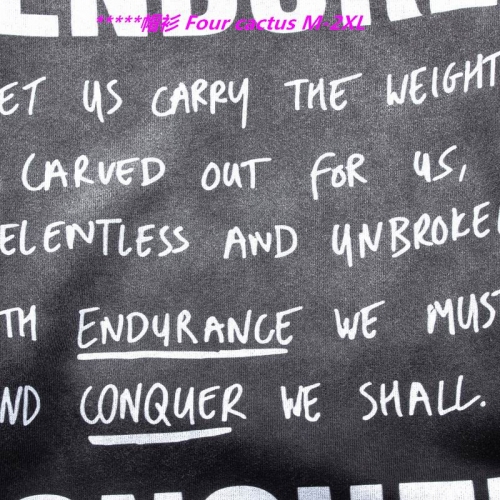 ENDURE
*****帽衫 Four cactus M-3XL
ET US CARRY THE WEIGHT
CARVED OUT FOR US,
ELENTLESS AND UNBROKE
TH ENDURANCE WE MUS
ND CONQUER WE SHALL.
ONQUE